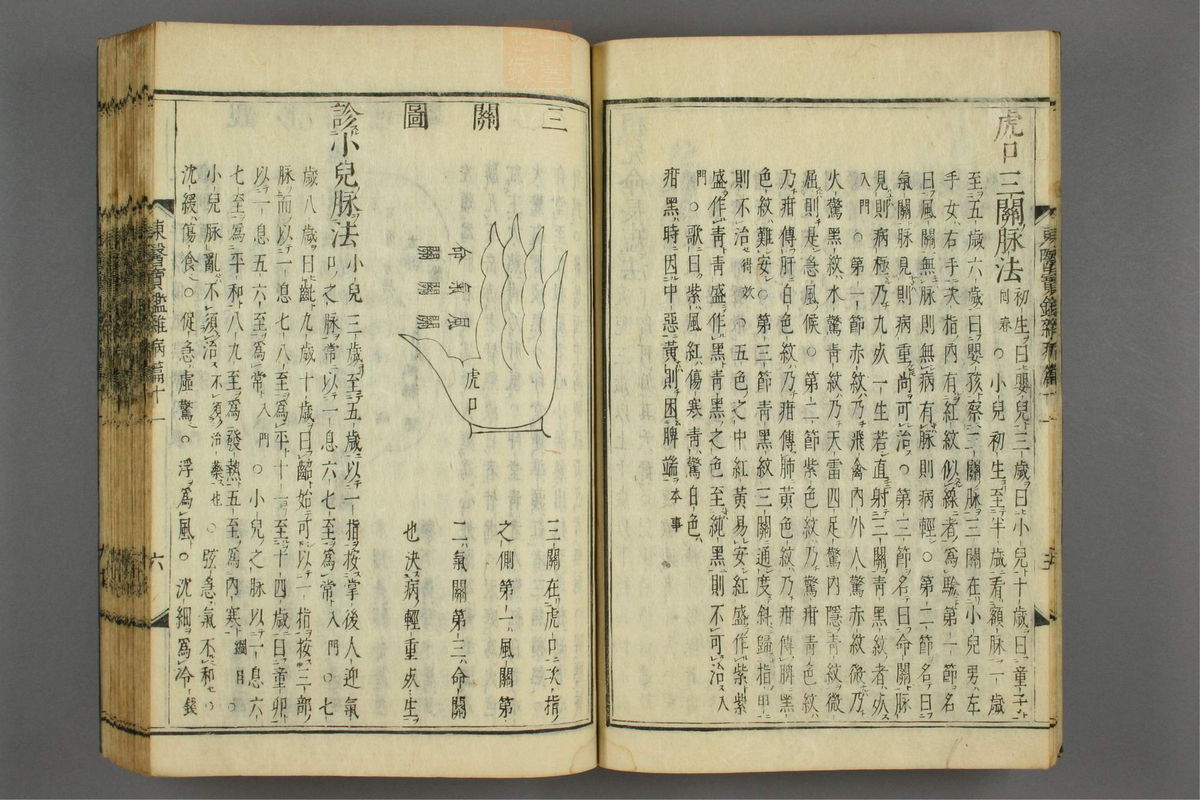 虎口三關脉法 初生曰嬰兒三歲曰小兒十歲曰童子
回春○小兒初生至半歲看額脉一歲
至五歲六歲曰嬰孩察三關脉三關在小兒男左
手女右手次指內有紅紋似線者為驗第一節名
曰風關無脉則無病有脉則病輕○第二節名曰
氣關脉見則病重尚可治○第三節名曰命關脉
見則病極乃九死一生若直射三關青黑紋者死
入門○第一節赤紋乃飛禽內外人驚赤紋微乃
火驚黑紋水驚青紋乃天雷四足驚內隱青紋微
屈則是急風候○第二節紫色紋乃驚疳青色紋
乃疳傳肝白色紋乃疳傳肺黃色紋乃疳傳脾黑
色紋難安○第三節青黑紋三關通度斜歸指甲
則不治得效○五色之中紅黃易安紅盛作紫紫
盛作青青盛作黑青黑之色至純黑則不可治入
門○歌曰紫風紅傷寒青驚白色
疳黑時因中惡黃則困脾端本事
三關圖
風關
氣關
命關
虎口
三關在虎口次指
之側第一風關第
二氣關第三命關
也決病輕重死生
診小兒脉法 小兒三歲至五歲以一指按掌後人迎氣
口之脉常以一息六七至為常入門○七
歲八歲曰齔九歲十歲曰齠始可以一指按三部
脉而以一息七八至為平十一至十四歲曰童丱
以一息五六至為常入門○小兒之脉以一息六
七至為平和八九至為發熱五至為內寒綱目○
小兒脉亂不須治不須治藥也○弦急氣不和○
沈緩傷食○促急虛驚○浮為風○沈細為冷錢
東醫寶鑑雜病篇十一
六